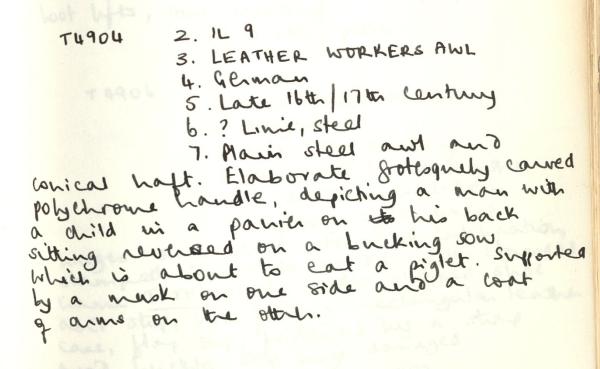 T4904 2. IL 9
3. LEATHER WORKERS AWL
4. German
5. Late 16th/17th century
6. ? Lime, steel
7. Plain steel awl and
conical haft. Elaborate grotesquely carved
polychrome handle, depicting a man with
a child in a panier on his back
sitting reversed on a bucking sow
which is about to eat a piglet. Supported
by a mask on one side and a coat
of arms on the other.